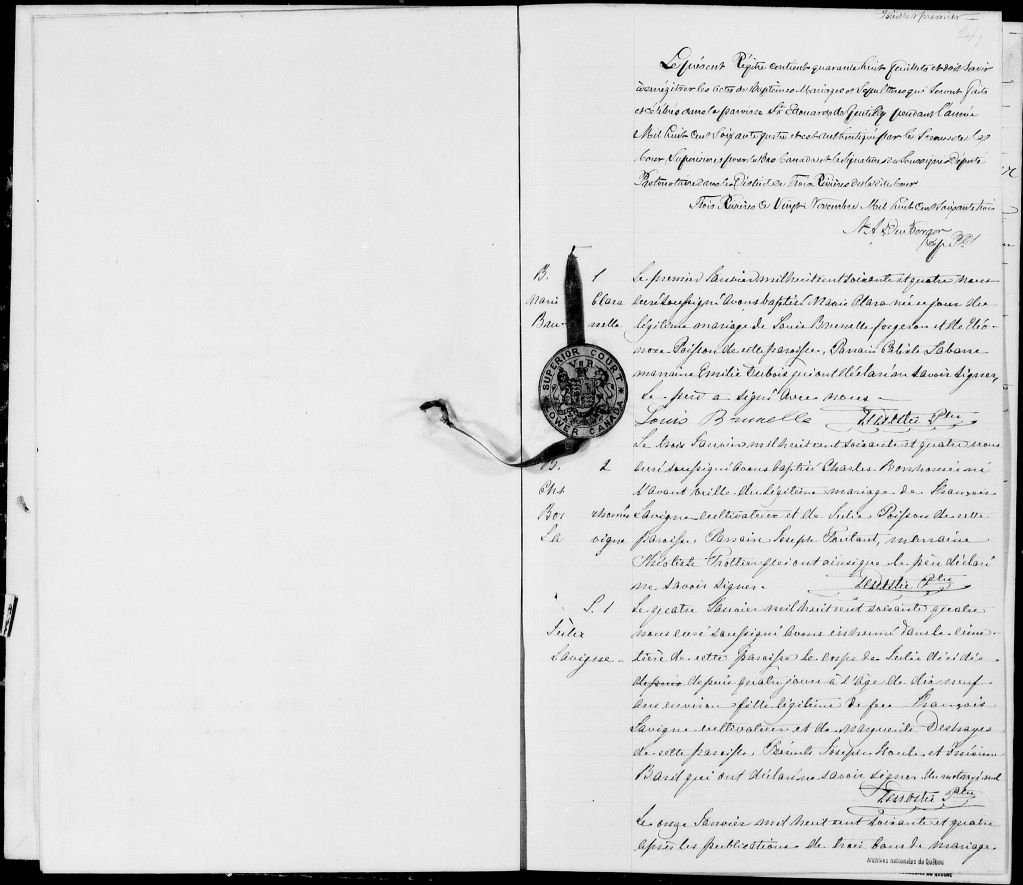 Feuillet premier
Le présent Régitre contient quarante huit feuillets et doit servir
à enrégitrer les actes de Baptêmes Mariages et Sepultures qui seront faits
et célébrés dans la paroisse St Edouard de Gentilly pendant l'année
Mil huit cent soixante quatre et est authentiqué par le Sceau de la
Cour Supérieure pour le Bas Canada et la signature du soussigné Député
Protonotaire dans le District de Trois Rivières de la dite Cour
Trois Rivières ce Vingt Novembre Mil huit cent soixante trois
B. 1
Marie Clara
Bru nelle
Le premier Janvier mil huit cent soixante et quatre nous
curé soussigné avons baptisé Marie Clara née ce jour du
légitime mariage de Louis Brunelle forgeron et de Eléo-
nore Poisson de cette paroisse, Parrain Calixte Labarre
marraine Emilie Dubois qui ont déclaré ne savoir signer,
Le père a signé avec nous -
Louis Brunelle
SUPERIOR COURT
V R
LOWER CANADA
B. 2
Chs
Bor rhomée
La vigne
Le trois Janvier mil huit cent soixante et quatre nous
curé soussigné avons baptisé Charles Borrhomée né
l'avant veille du légitime mariage de François
Lavigne cultivateur et de Julie Poisson de cette
paroisse, Parrain Joseph Toutant, marraine
Théotiste Trottier qui ont ainsi que le père déclaré
ne savoir signer.
S. 1
Julie
Lavigne
Le quatre Janvier mil huit cent soixante quatre
nous curé soussigné avons inhumé dans le cime-
tière de cette paroisse le corps de Julie décédée
depuis depuis quatre jours à l'âge de dix neuf
ans environ fille légitime de feu François
Lavigne cultivateur et de Marguerite Deshayes
de cette paroisse, Présents Joseph Houle et
Baril qui ont déclaré ne savoir signer
Le onze Janvier mil huit cent soixante et quatre
après les publications de trois bans de mariage
Archives nationales du Québec